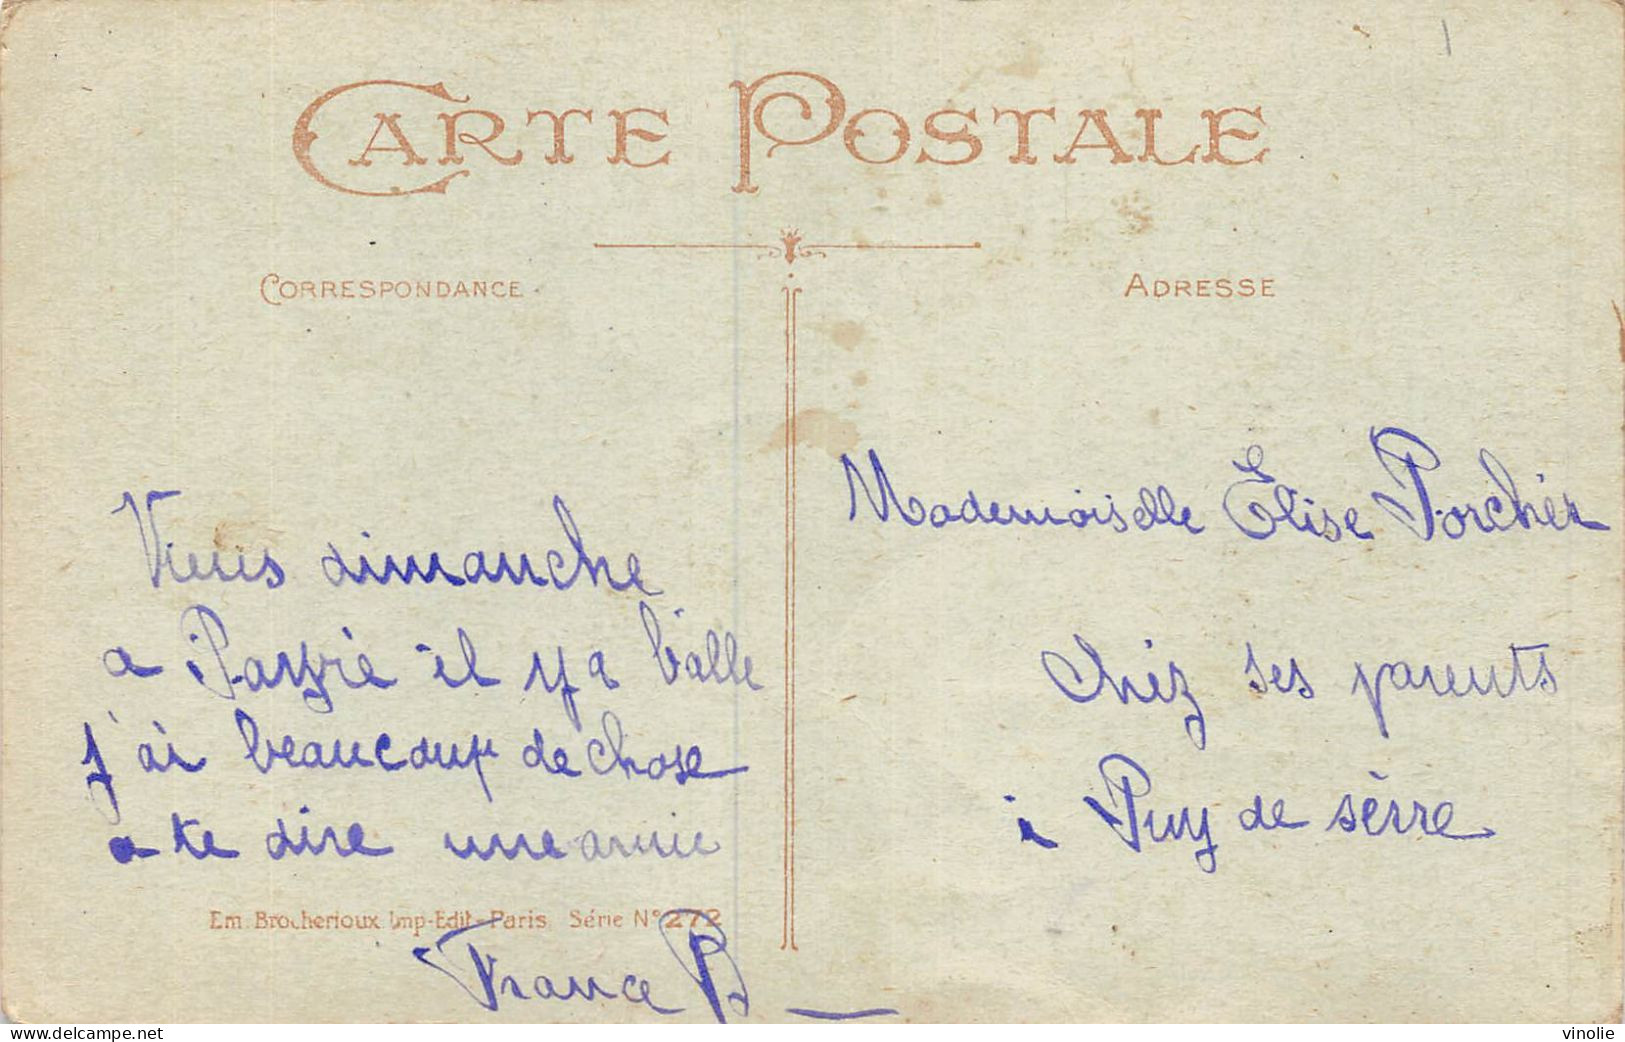 CARTE POSTALE
CORRESPONDANCE
ADRESSE
Viens dimanche
a Payré il y a balle
j'ai beaucoup de chose
a te dire une amie
France B
Em. Brocherioux Imp-Edit-Paris. Série N° 272
Mademoiselle Élise Porchér
chéz ses parents
à Puy de sèrre
delcampe.net
vinolie